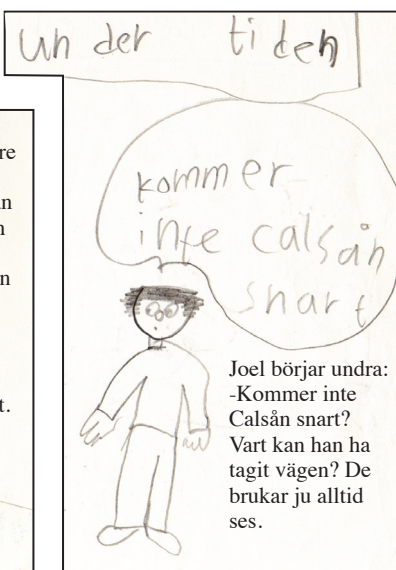 un der ti den
kommer
inte calsån
snart
Joel börjar undra:
-Kommer inte
Calsån snart?
Vart kan han ha
tagit vägen? De
brukar ju alltid
ses.